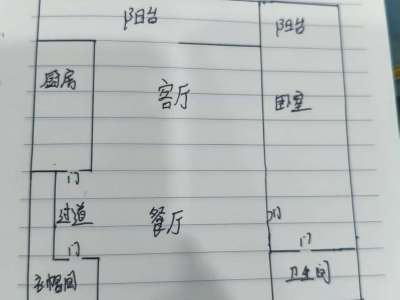 阳台
阳台
厨房
客厅
卧室
门
过道
餐厅
门
门
门
衣帽间
卫生间